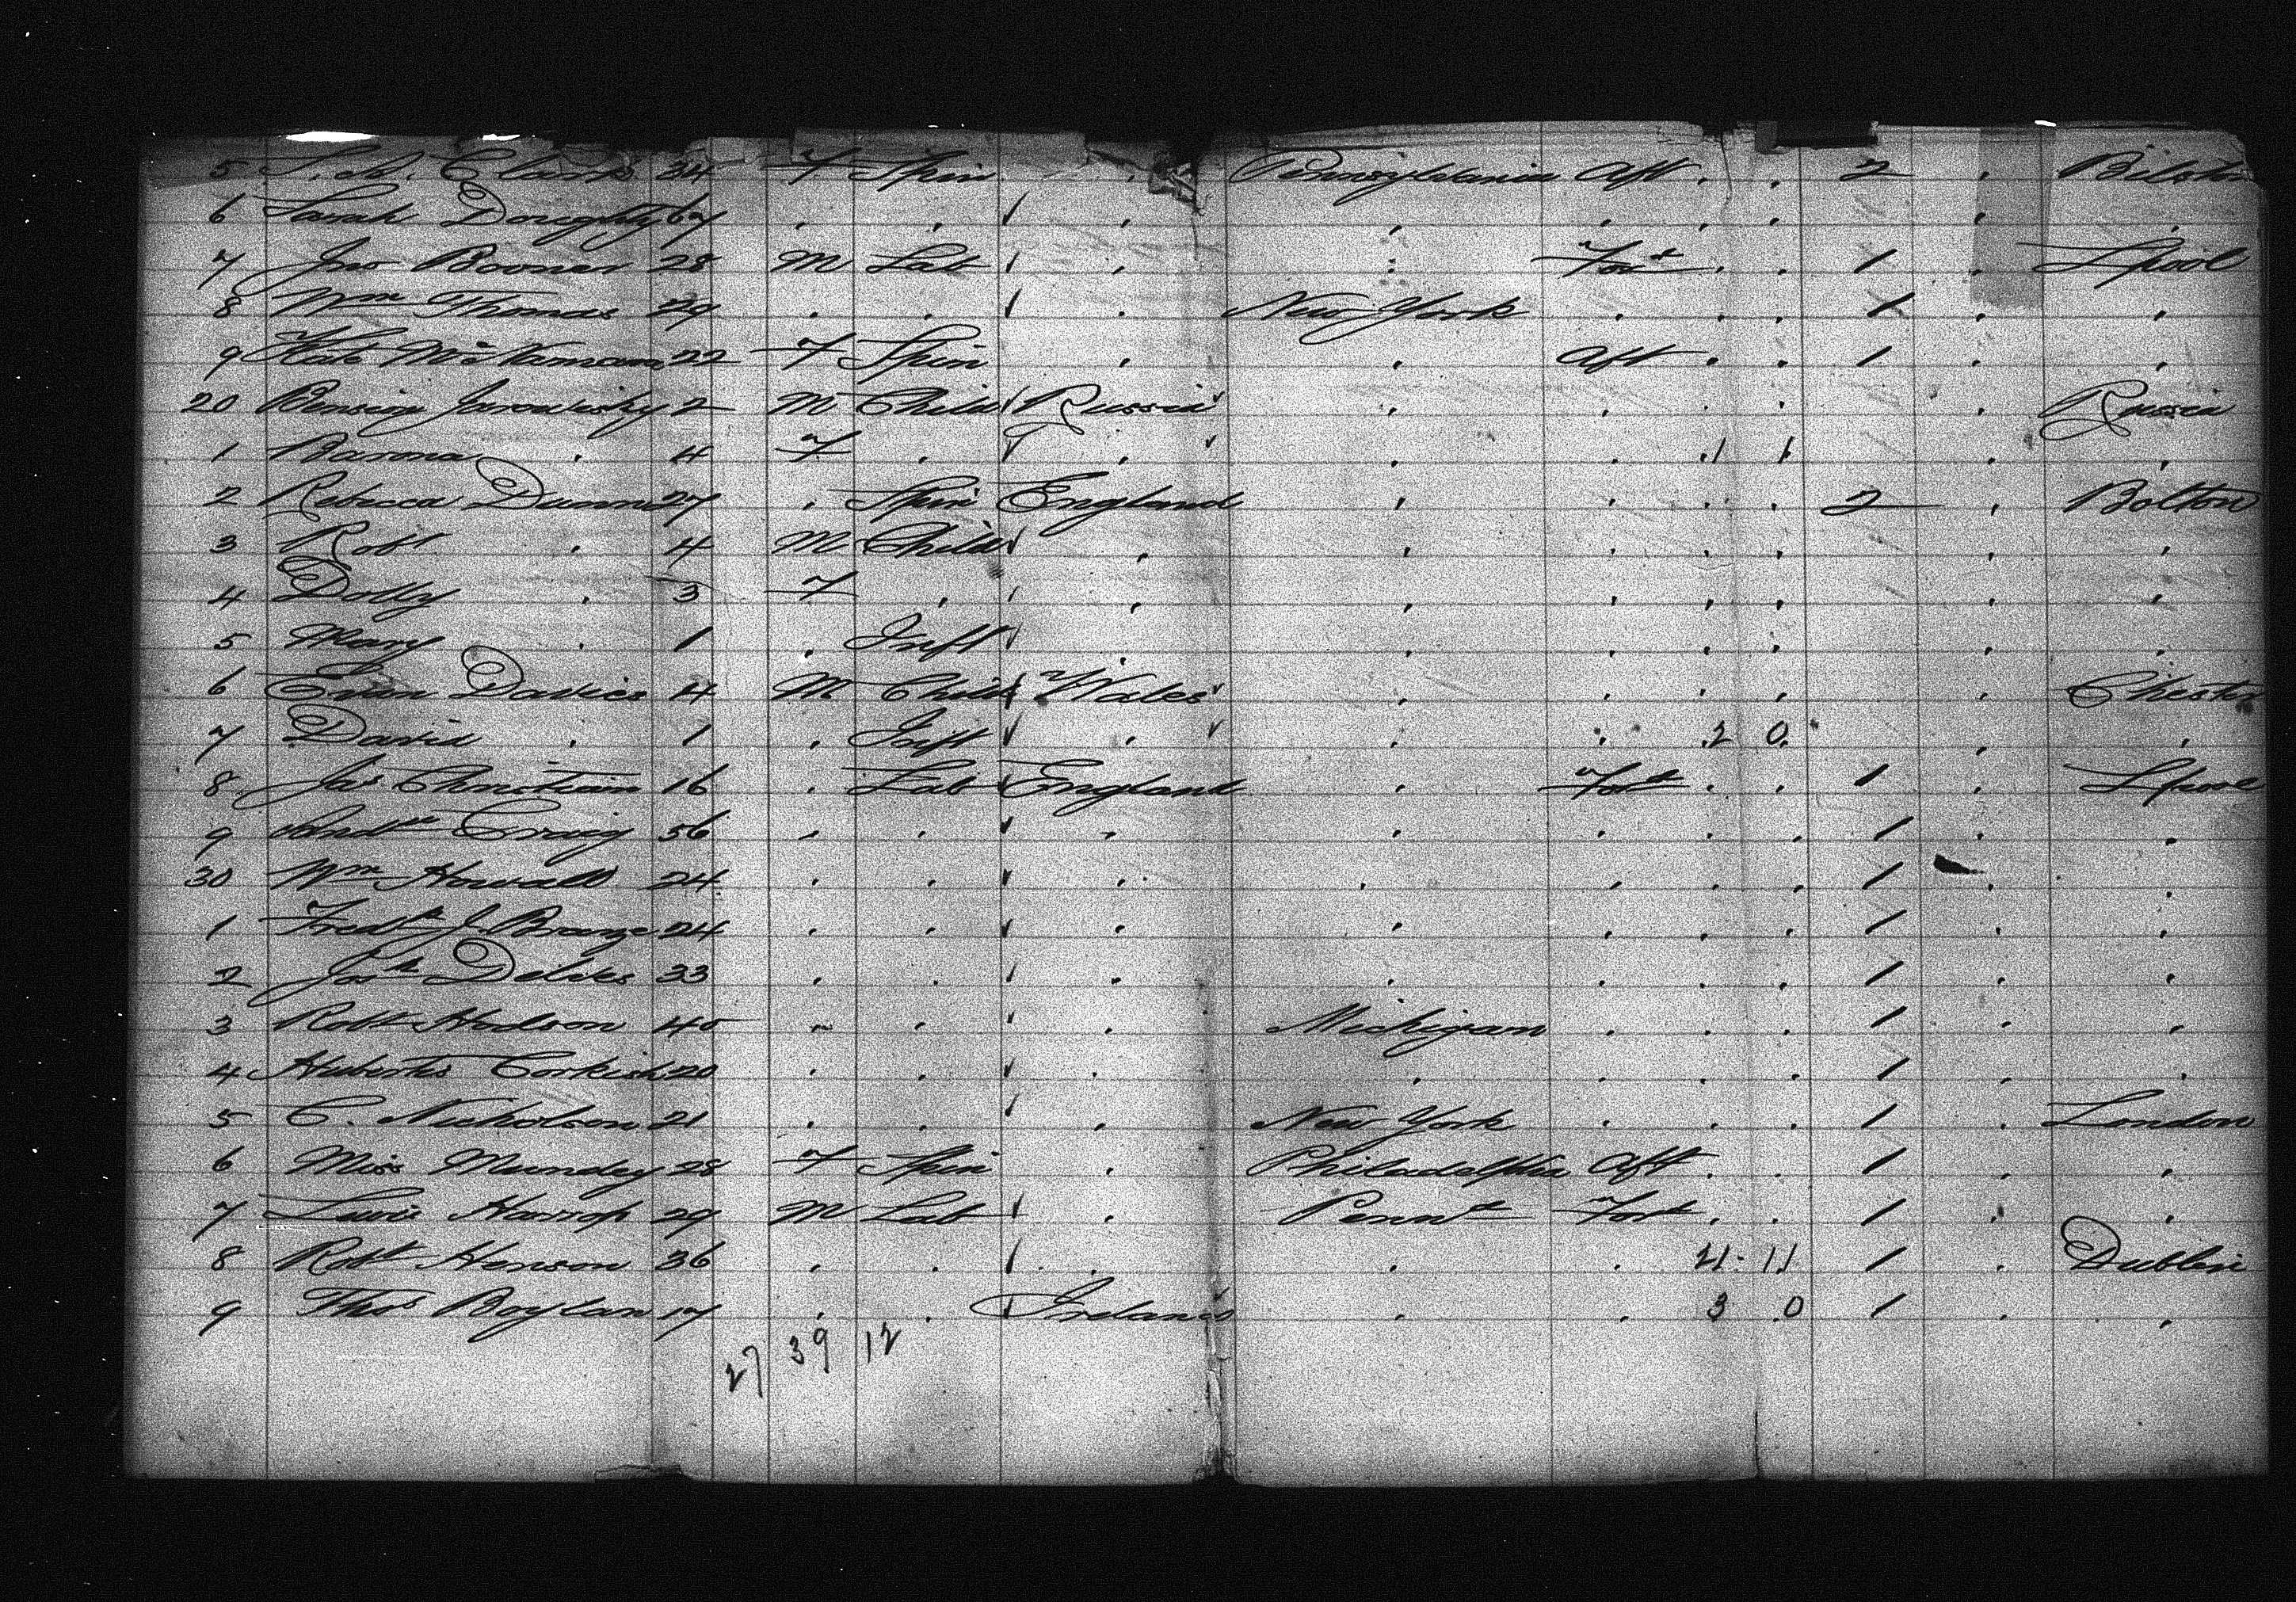 5 S. A. Clark 34 F Spin , Pennsylvania Aft , , 2 , Bilston
6 Sarah Doughty 67 , , ✓ , , , , , , ,
7 Jno Booner 28 M Lab ✓ , , For't , , 1 , Lpool
8 Wm Thomas 29 , , ✓ , New York , , , 1 , ,
9 Kate McNamara 22 F Spin , , Aft , , 1 , ,
20 2 M Child ✓ Russia ✓ , , , , , Russia
1 , 4 F , ✓ , ✓ , , , 1 1 , ,
2 Rebecca Dunn 27 , Spin England , , , , 2 , Bolton
3 Robt , 4 M Child ✓ , , , , , , ,
4 Dolly , 3 F , ✓ , , , , , , ,
5 Mary , 1 , Inft ✓ , , , , , , ,
6 Evan Davies 4 M Child ✓ Wales ✓ , , , , , Chester
7 David , 1 , Inft ✓ , ✓ , , , 2 0 , ,
8 Jas Christian 16 , Lab ✓ England , Fort , , 1 , Lpool
9 Craig 56 , , ✓ , , , , , 1 , ,
30 Wm Howall 24 , , ✓ , , , , , 1 , ,
1 Fredk J. 24 , , ✓ , , , , , 1 , ,
2 Josh 33 , , ✓ , , , , , 1 , ,
3 Robt Hodson 40 , , ✓ , Michigan , , , 1 , ,
4 Corkish 20 , , ✓ , , , , , 1 , ,
5 C. Nicholson 21 , , ✓ , New York , , , 1 , London
6 Miss Munday 28 F Spin , Philadelphia Aft , , 1 , ,
7 Harrop 29 M Lab ✓ , Penn'a Fort , , 1 , ,
8 Robt Henson 36 , , ✓ , , , 21 11 1 , Dublin
9 Thos Boylan 17 , , ✓ Ireland ✓ , , 3 0 1 , ,
27 39 12